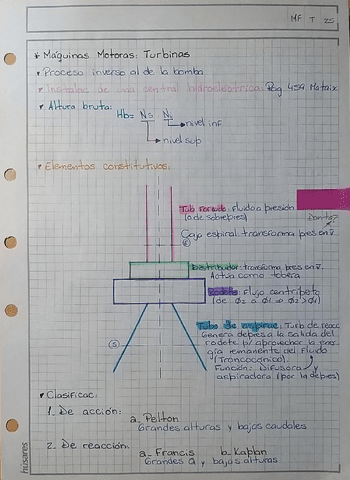 MF T 25
* Máquinas Motoras: Turbinas
• Proceso inverso al de la bomba
• Instalac de una central hidroeléctrica: Pág. 459 Mataix
• Altura bruta: Hb= Ns Ni
nivel inf
nivel sup
• Elementos constitutivos:
Tub Forzada: Fluido a presión
(o de sobrepres)
Caja espiral: transforma pres en v.
Distribuidor: transforma pres en v.
Actua como tobera
Rodete: Flujo centrípeto
(de φ2 a φ1 ⇒ φ2>φ1)
Tubo de aspirac: Turb de reacc
Genera depres a la salida del
rodete p/ aprovechar la ener
gía remanente del fluido
(Troncocónico).
Función: Difusora y
aspiradora (por la depres)
(S)
• Clasificac:
1. De acción:
a_ Pelton
Grandes alturas y bajos caudales
2. De reacción:
a_ Francis b_ Kaplan
Grandes Q y bajas alturas
húsares